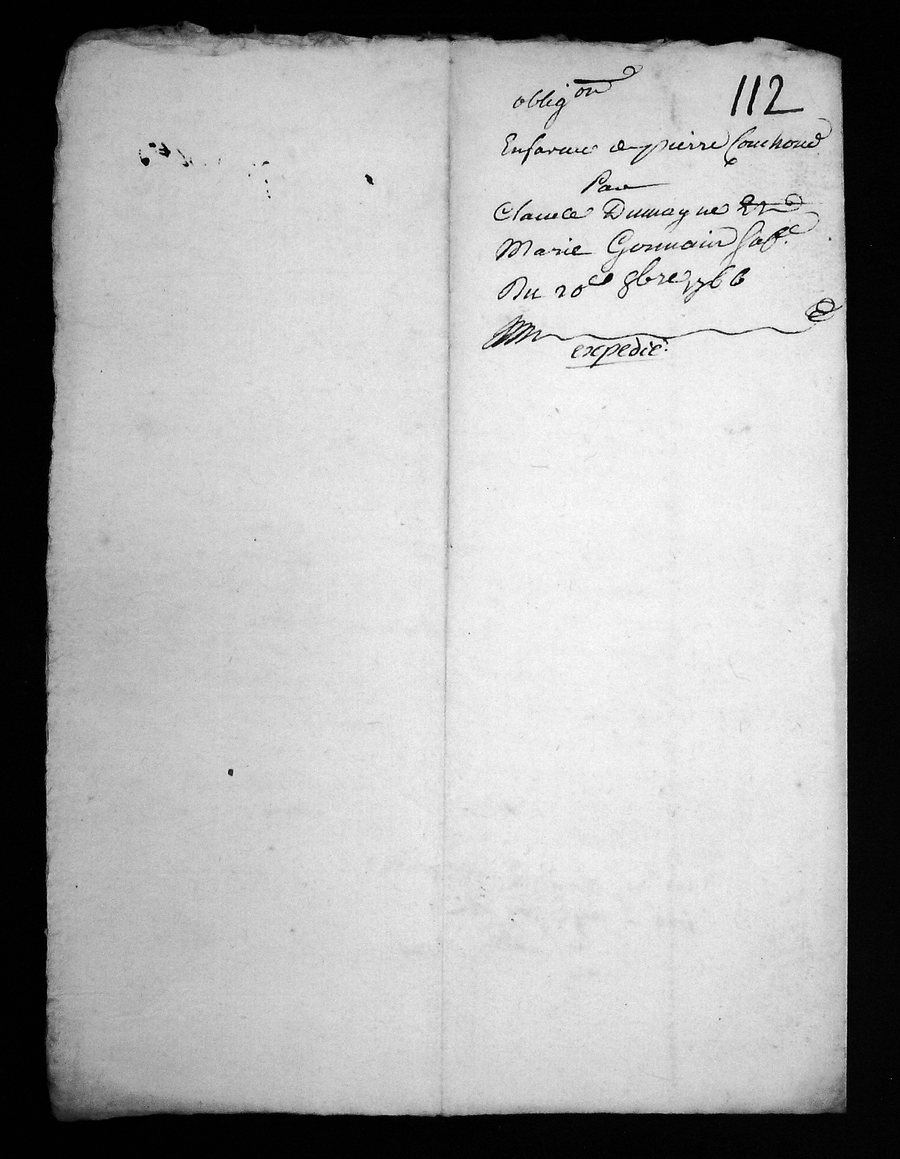 112
obligon
Enfaveur de pierre Couhond
Par
Claude Dumagne Et
Marie Gonnain sa fe.
Du 20e 8bre 1766
expedié